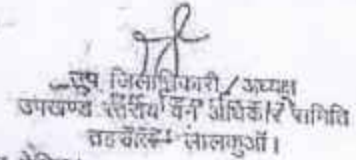 उप जिलाधिकारी / अध्यक्ष
उपखण्ड स्तरीय वन अधिकार समिति
लालकुआँ।